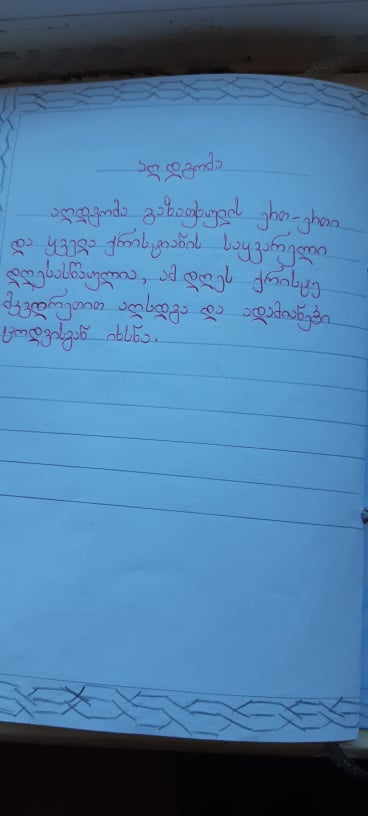 აღდგომა
აღდგომა გაზაფხულის ერთ-ერთი
და ყველა ქრისტიანის საყვარელი
დღესასწაულია, ამ დღეს ქრისტე
მკვდრეთით აღსდგა და ადამიანები
ცოდვისგან იხსნა.